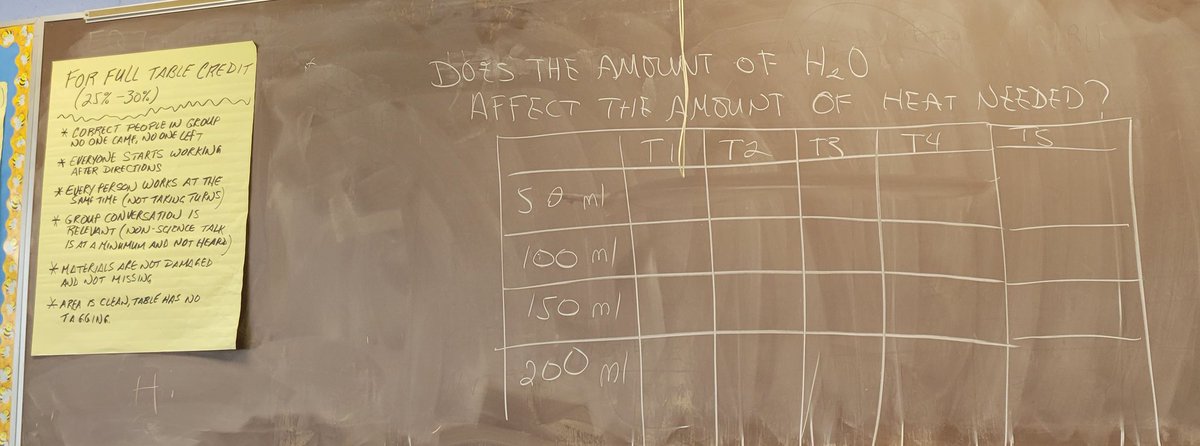 FOR FULL TABLE CREDIT
(25% - 30%)
* CORRECT PEOPLE IN GROUP
NO ONE CAME, NO ONE LEFT
* EVERYONE STARTS WORKING
AFTER DIRECTIONS
* EVERY PERSON WORKS AT THE
SAME TIME (NOT TAKING TURNS)
* GROUP CONVERSATION IS
RELEVANT (NON-SCIENCE TALK
IS AT A MINUMUM AND NOT HEARD)
* MATERIALS ARE NOT DAMAGED
AND NOT MISSING
* AREA IS CLEAN, TABLE HAS NO
TAGGING
DOES THE AMOUNT OF H₂O
AFFECT THE AMOUNT OF HEAT NEEDED?
T1 T2 T3 T4 T5
50 ml
100 ml
150 ml
200 ml
H